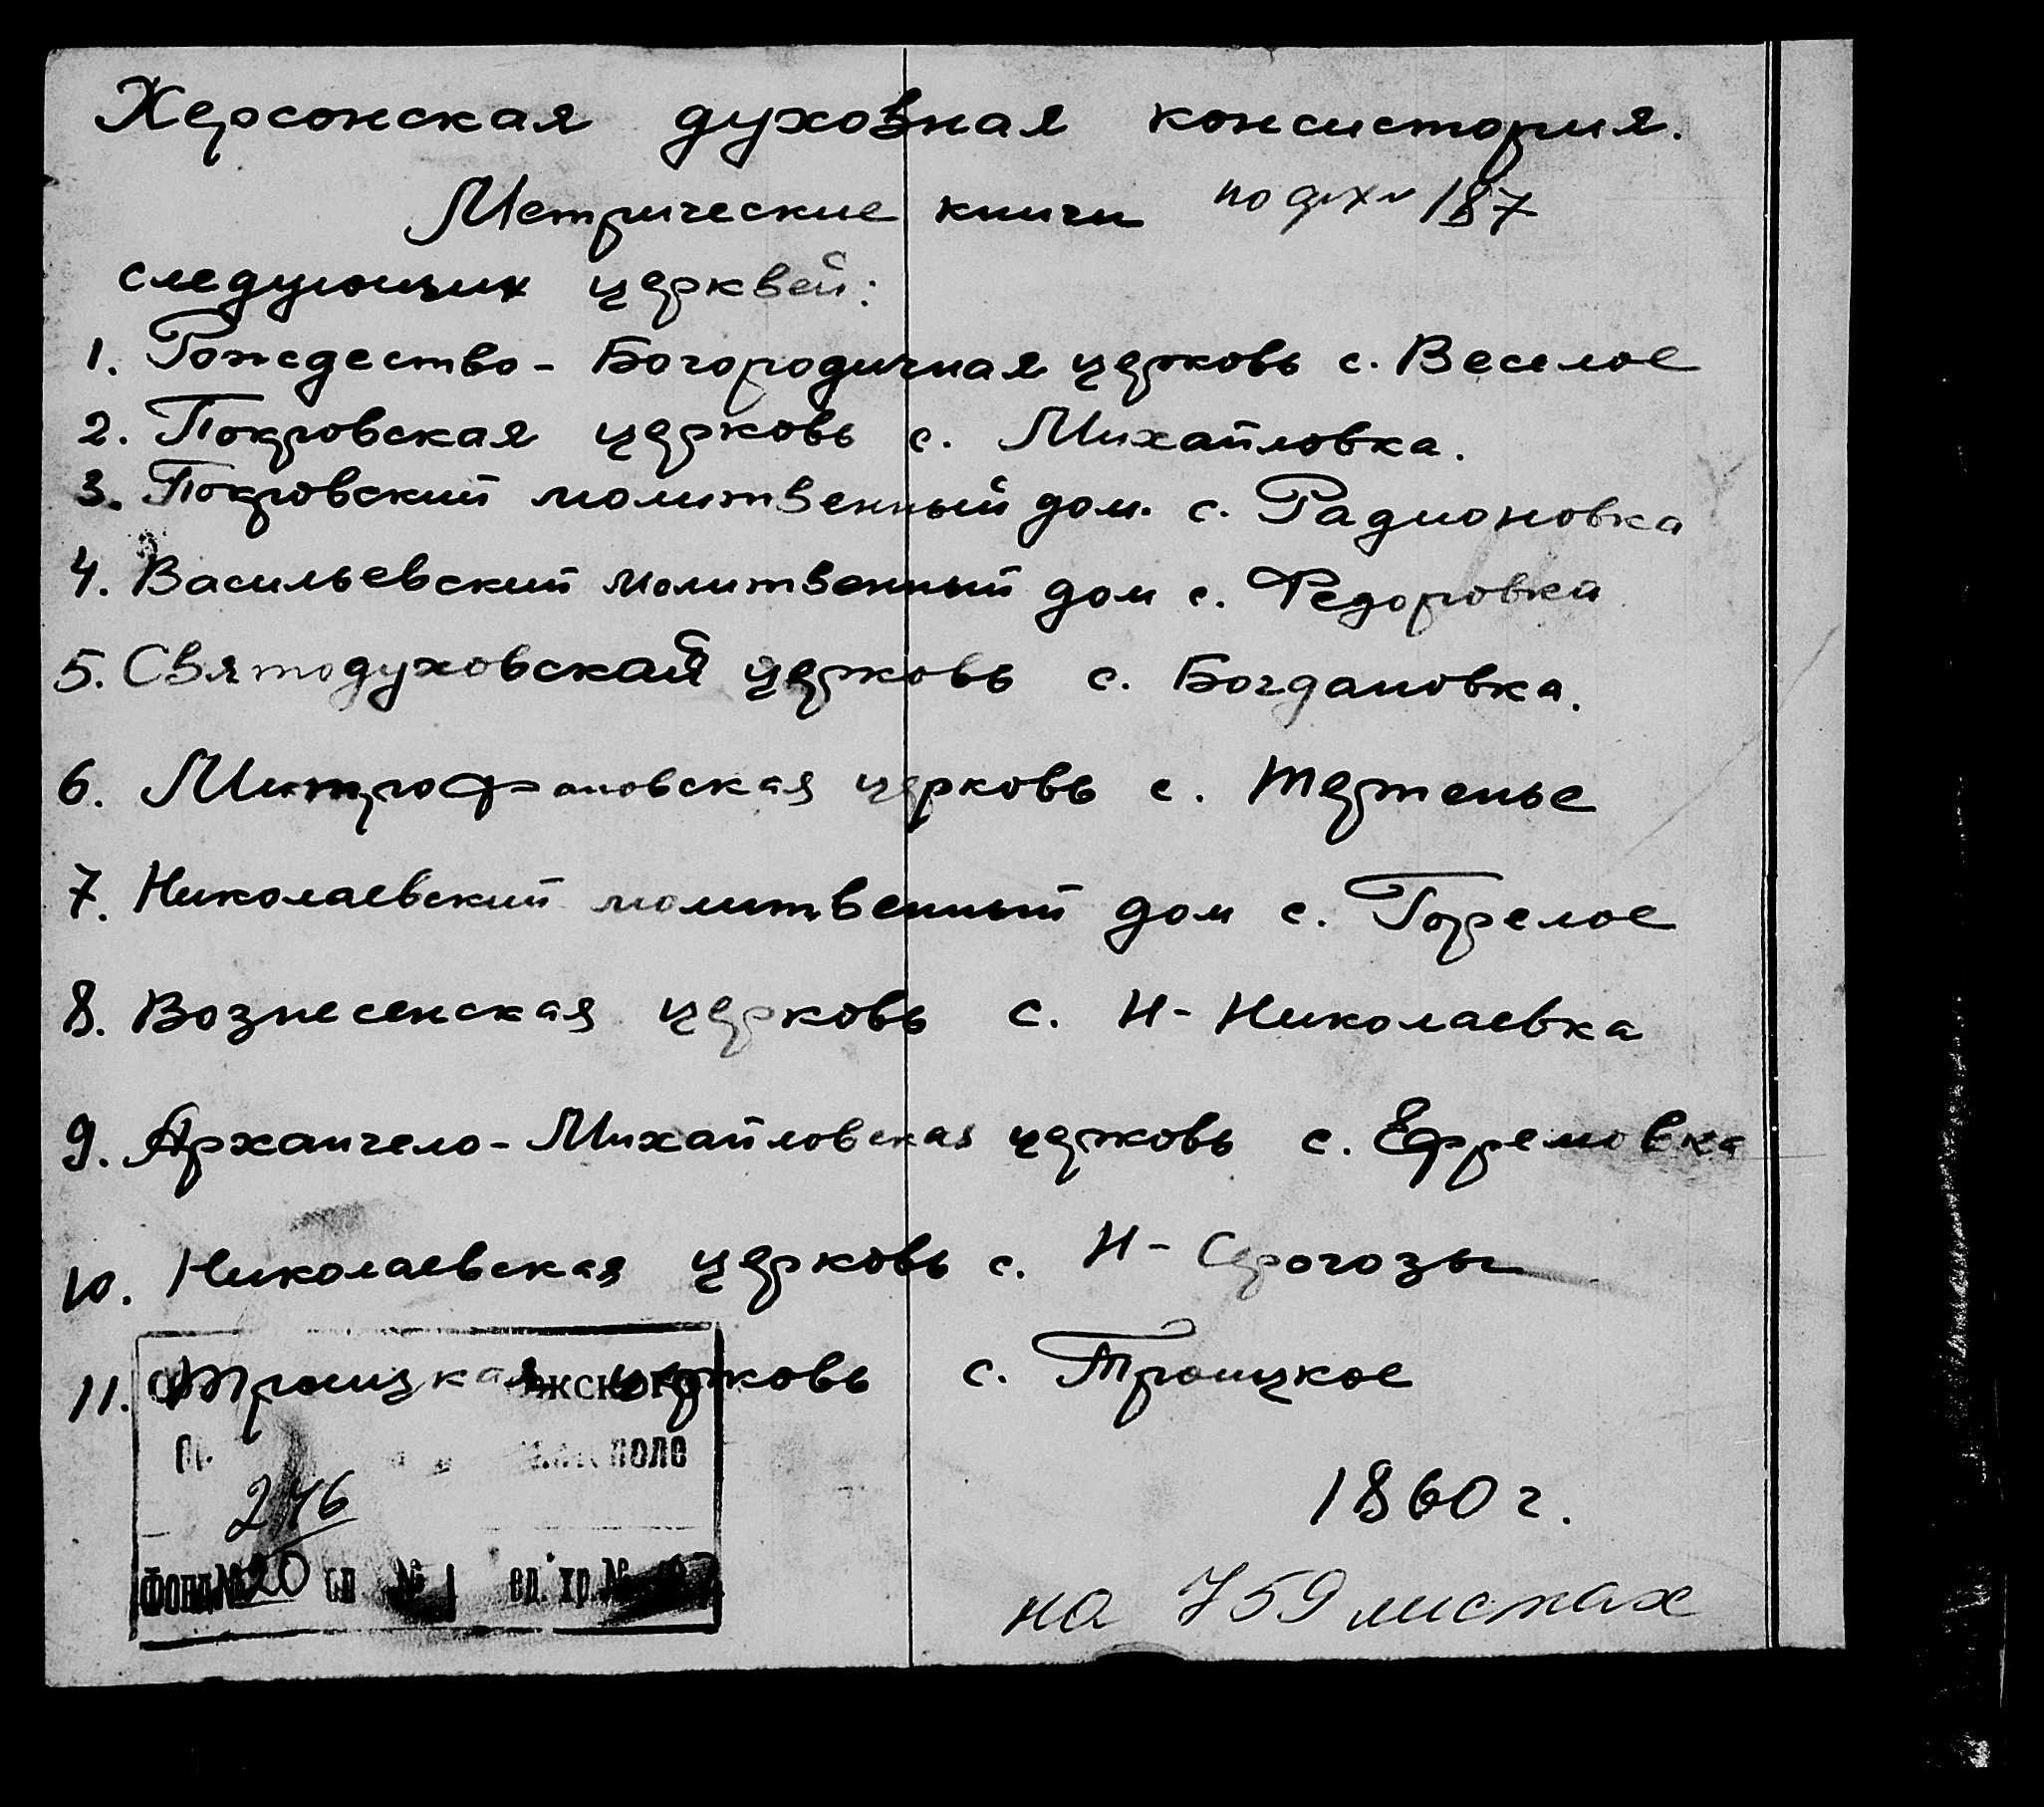 Херсонская духовная консистория.
Метрические книги 187
следующих церквей:
1. Рождество-Богородичная церковь с. Веселое
2. Покровская церковь с. Михайловка.
3. Покровский молитвенный дом. с. Радионовка
4. Васильевский молитвенный дом с. Федоровка
5. Святодуховская церковь с. Богдановка.
6. Митрофановская церковь с. Терпенье
7. Николаевский молитвенный дом с. Горелое
8. Вознесенская церковь с. Н-Николаевка
9. Архангело-Михайловская церковь с. Ефремовка
10. Николаевская церковь с. Н-Серогозы
11. Троицкая церковь с. Троицкое
246
1860 г.
Фонд № 20 № 1 ед. хр. №
на 759 листах